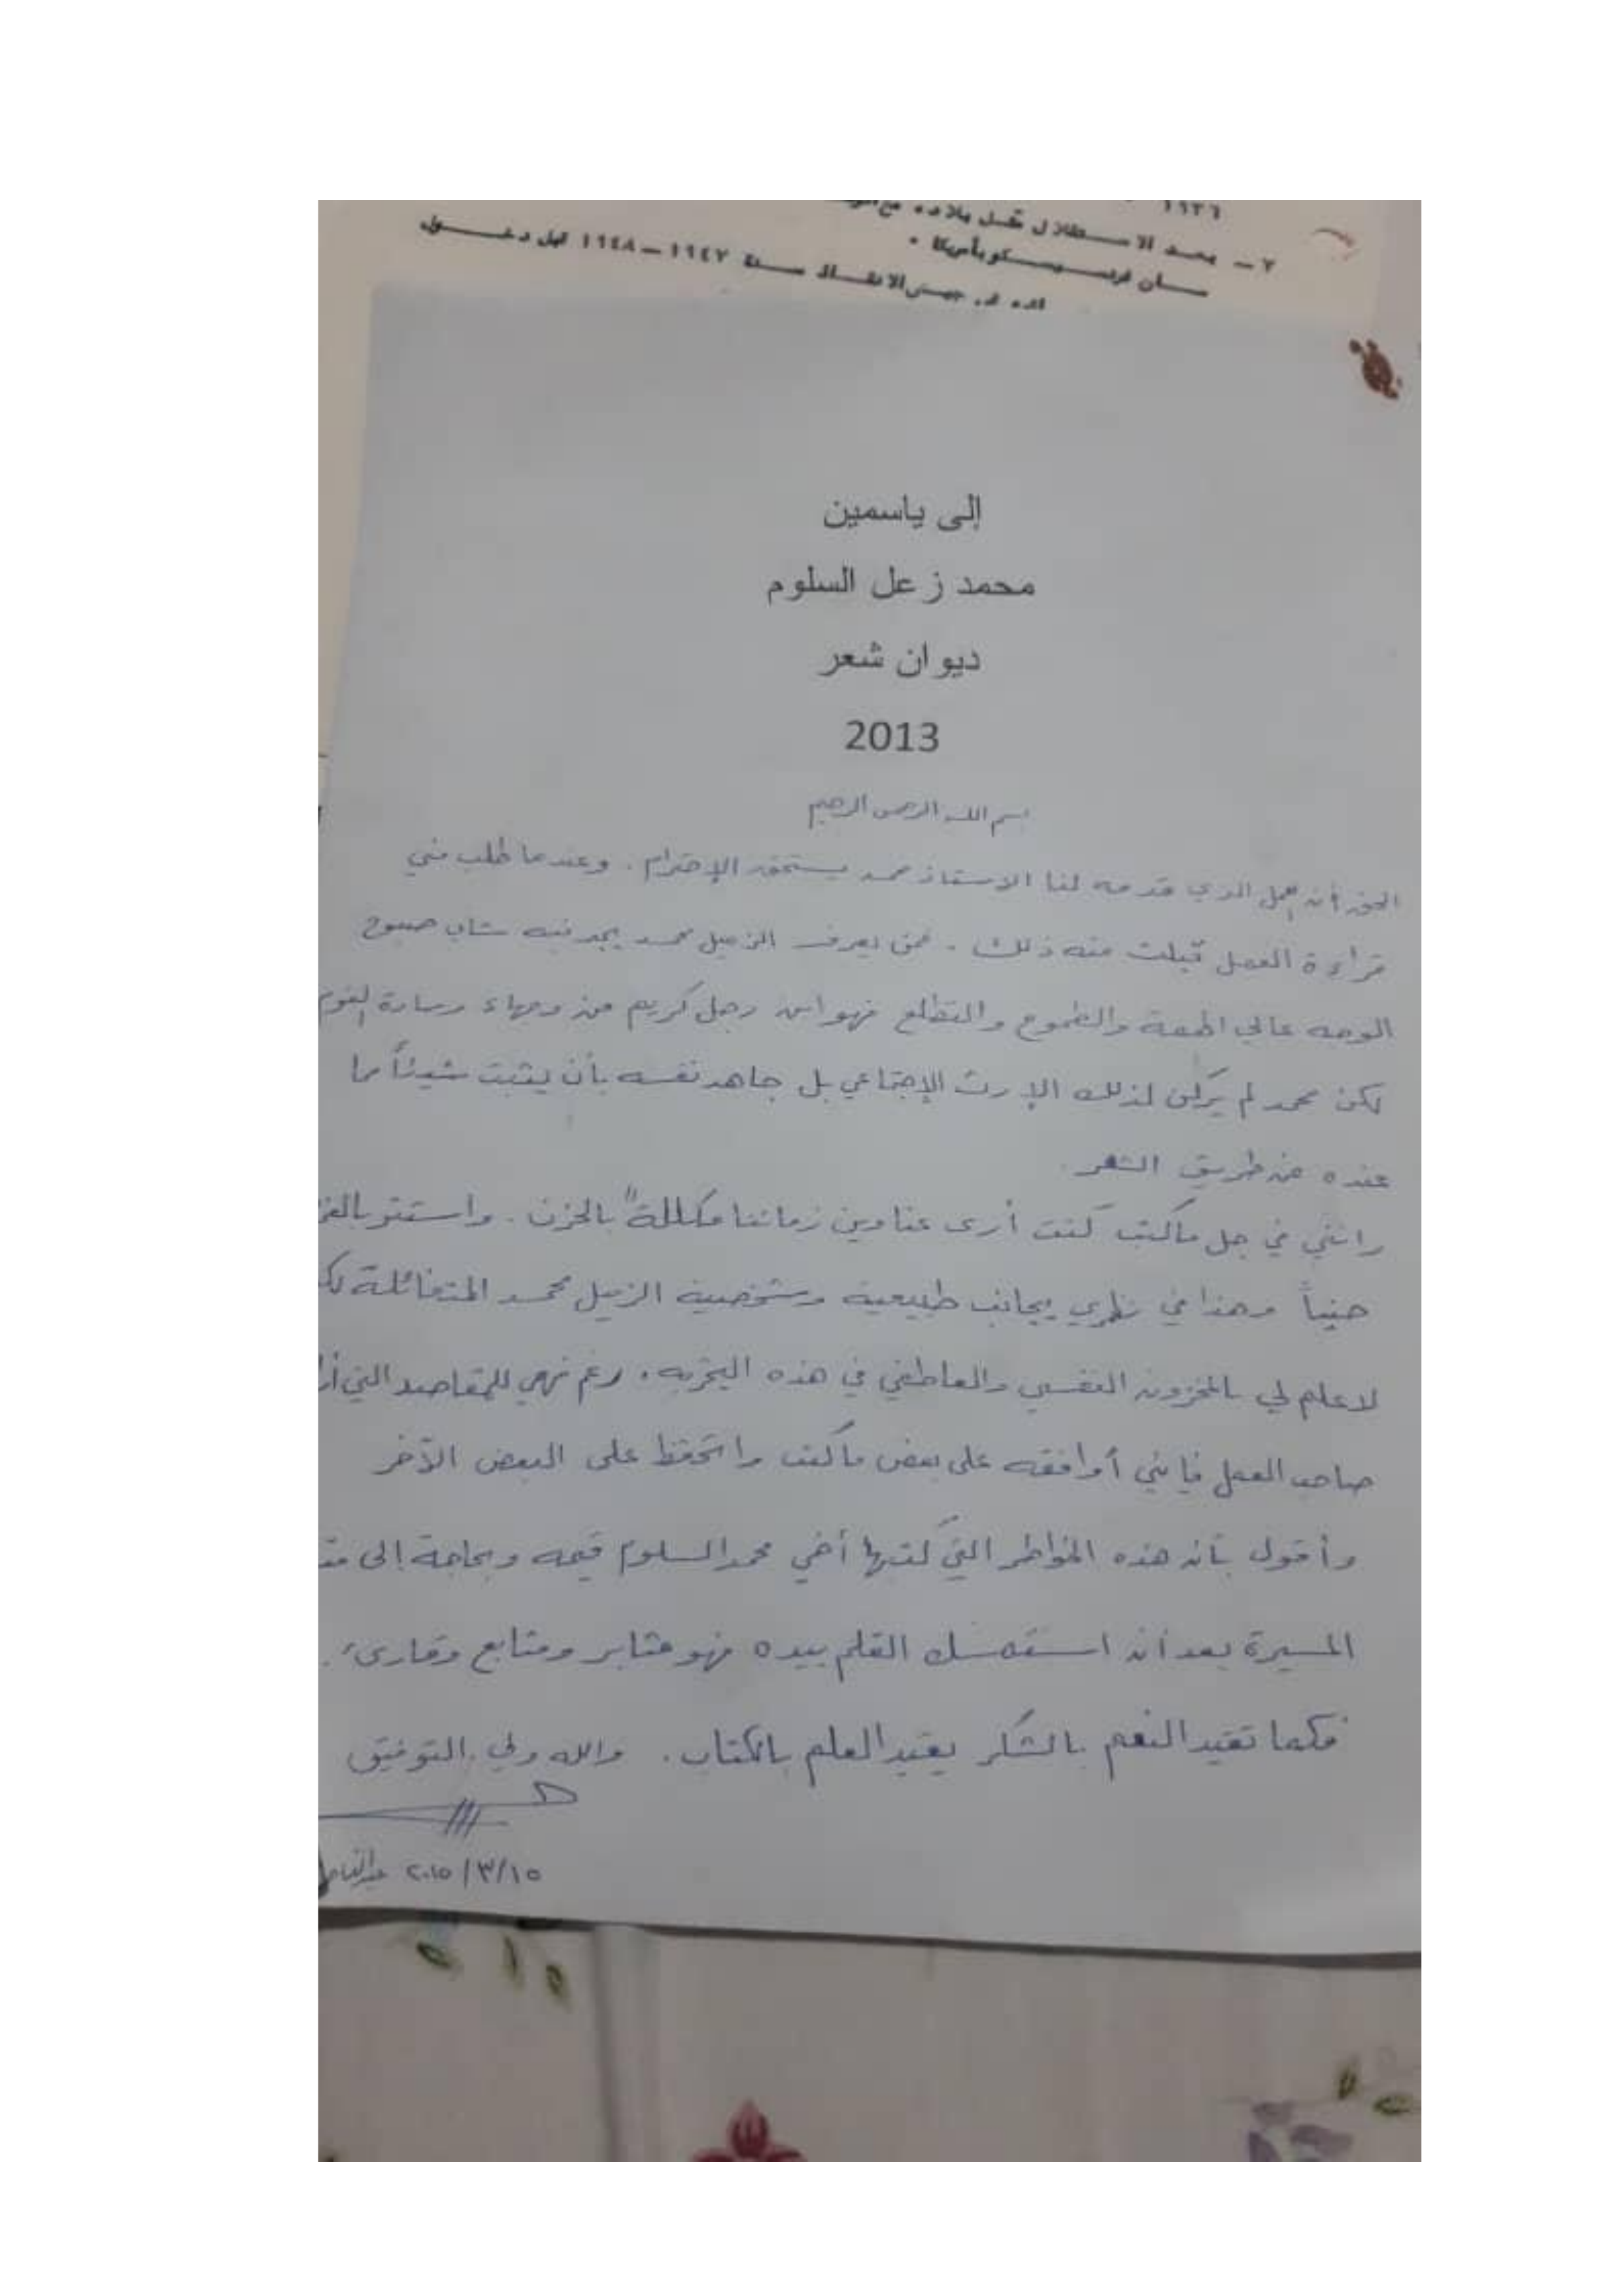 ١٩٣٦
٢ - بعد الاستقلال مثل بلاده مع
سان فرنسيسكو بأمريكا .
جيش الانقاذ سنة ١٩٤٧ - ١٩٤٨ قبل دخول
إلى ياسمين
محمد زعل السلوم
ديوان شعر
2013
بسم الله الرحمن الرحيم
الحق أن العمل الذي قدمه لنا الاستاذ محمد يستحق الإحترام . وعندما طلب مني
قراءة العمل قبلت منه ذلك . فمن يعرف الزميل محمد يجد فيه شاب صبوح
الوجه عالي الهمة والطموح والتطلع فهو ابن رجل كريم من وجهاء وسادة القوم
لكن محمد لم يركن لذلك الإرث الإجتماعي بل جاهد نفسه بأن يثبت شيئاً ما
عنده عن طريق الشعر .
وانني في جل ماكتب كنت أرى عناوين زماننا مكللة بالحزن .
حيناً وهذا في نظري يجانب طبيعية وشخصية الزميل محمد المتفائلة
لاعلم لي بالمخزون النفسي والعاطفي في هذه التجربه . رغم فهمي للمقاصد التي
صاحب العمل فإنني أوافقه على بعض ماكتب واتحفظ على البعض الآخر
وأقول بأن هذه الخواطر التي كتبها أخي محمد السلوم قيمه وبحاجة إلى
المسيرة بعد أن استمسك القلم بيده فهو مثابر ومتابع وقارىء .
فكما تقيد النعم بالشكر يقيد العلم بالكتاب . والله ولي التوفيق
٢٠١٥/٣/١٥